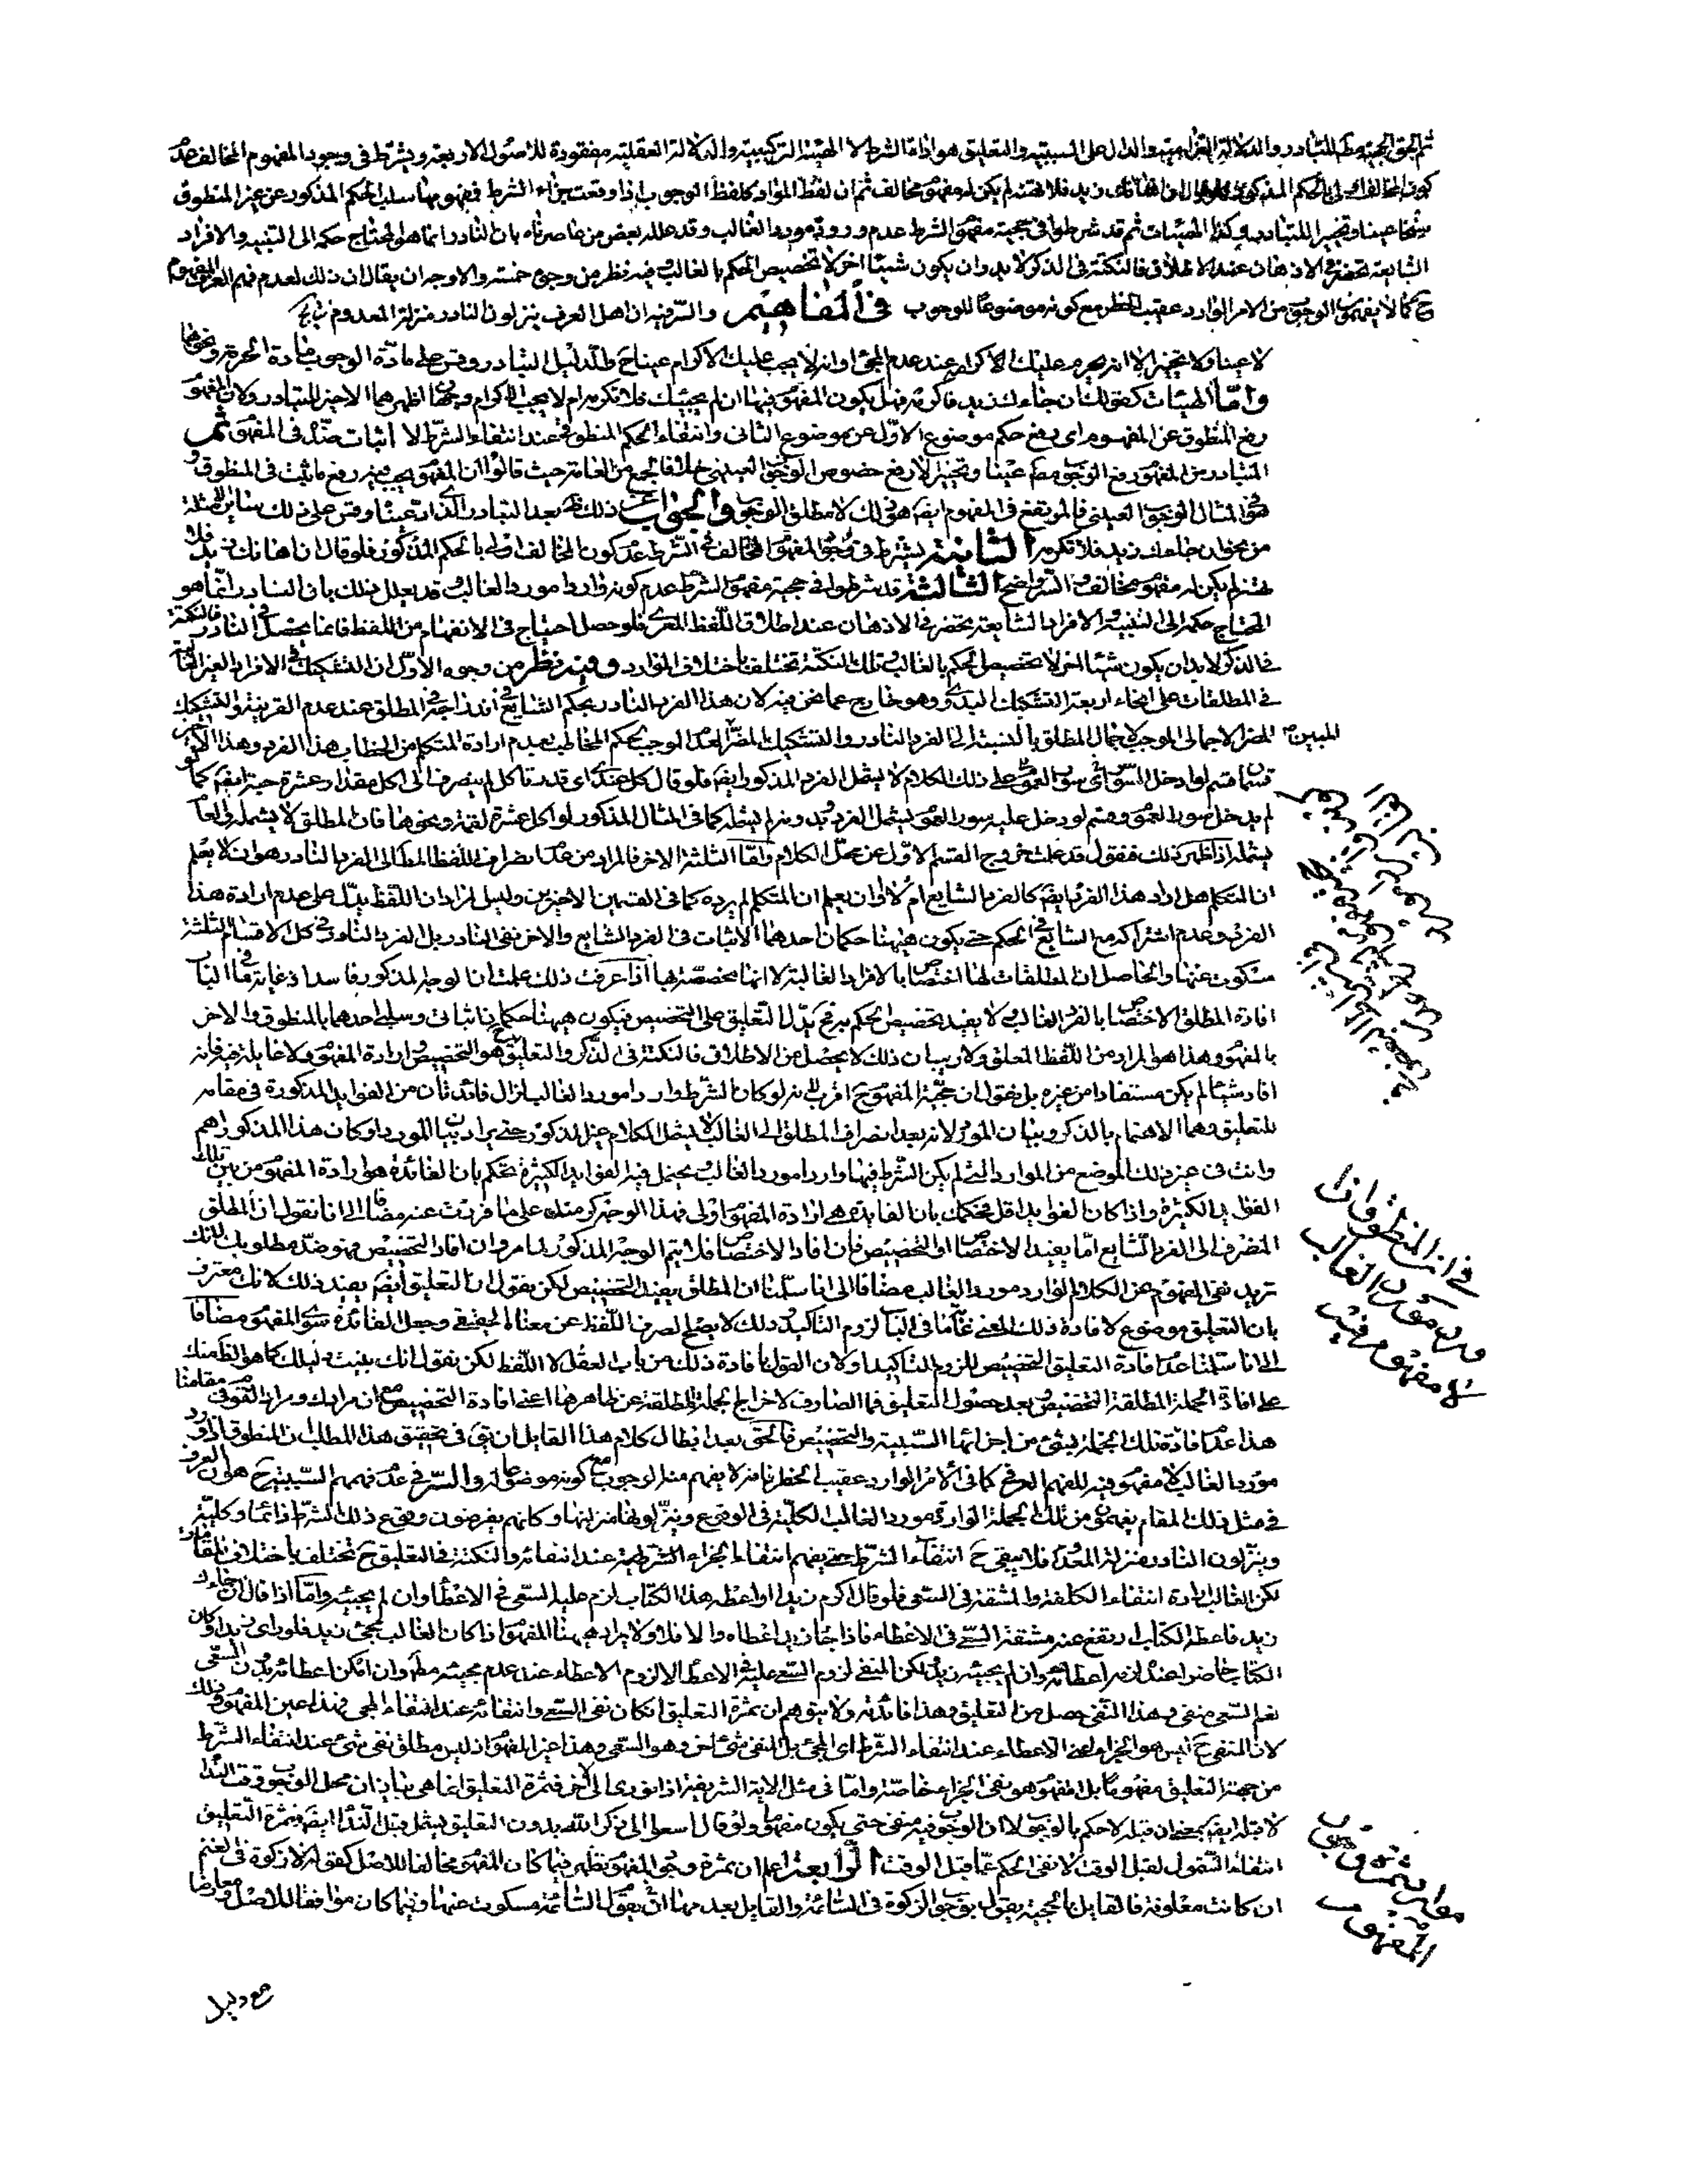 ثم الحق الحجية مط للتبادر والدلالة التزامية والدال على السببية والتعليق هو اداة الشرط لا الهيئة التركيبية والدلالة العقلية مفقودة للاصول الاربعة ويشترط في وجود المفهوم المخالف عدم
كون المخالف اولى بالحكم المذكور فلو قال ان اهانك زيد فلا تهنه لم يكن له مفهوم مخالف ثم ان لفظ المواد كلفظ الوجوب اذا وقعت جزاء الشرط فمفهومها سلب الحكم المذكور عن غير المنطوق
عينا وتخييرا للتبادر وكذا الهيئات ثم قد شرطوا في حجية مفهوم الشرط عدم وروده مورد الغالب وقد علله بعض من عاصرناه بان النادر انما هو المحتاج حكمه الى التنبيه والافراد
الشايعة تحضر في الاذهان عند الاطلاق فالنكتة في الذكر لا بد وان يكون شيئا اخر لا تخصيص الحكم بالغالب وفيه نظر من وجوه خمسة والاوجه ان يقال ان ذلك لعدم فهم العرف المفهوم
ح كما لا يفهمون الوجوب من الامر الوارد عقيب الحظر مع كونه موضوعا للوجوب في المفاهيم والسر فيه ان اهل العرف ينزلون النادر منزلة المعدوم
لا عينا ولا تخييرا لا انه يحرم عليك الاكرام عند عدم المجئ او انه لا يجب عليك الاكرام عينا ح والدليل التبادر وقس على مادة الوجوب مادة الحرمة ونحوها
واما الهيئات كقولك ان جاءك زيد فاكرمه فهل يكون المفهوم فيها ان لم يجيئك فلا تكرمه ام لا يجب الاكرام وجهان اظهرهما الاخير للتبادر ولان المفهوم
رفع المنطوق عن المفهوم اى رفع حكم موضوع الاول عن موضوع الثانى وانتفاء الحكم المنطوقى عند انتفاء الشرط لا اثبات ضده في المفهوم ثم
المتبادر من المفهوم رفع الوجوب مط عينا وتخييرا لا رفع خصوص الوجوب العينى خلافا لجمع من العامة حيث قالوا ان المفهوم يجب فيه رفع ما ثبت في المنطوق و
هو في المثال الوجوب العينى فالمرتفع في المفهوم ايضا هو ذلك لا مطلق الوجوب والجواب عن ذلك ظ بعد التبادر الذى ادعينا وقس على ذلك ساير الامثلة
من نحو ان جاءك زيد فلا تكرمه الثانية يشترط في وجود المفهوم المخالف في الشرط عدم كون المخالف اولى بالحكم المذكور فلو قال ان اهانك زيد فلا
تهنه لم يكن له مفهوم مخالف والسر واضح الثالثة قد شرطوا في حجية مفهوم الشرط عدم كونه واردا مورد الغالب وقد يعلل ذلك بان النادر انما هو
المحتاج حكمه الى التنبيه والافراد الشايعة تحضر في الاذهان عند اطلاق اللفظ المعرى فلو حصل احتياج في الانفهام من اللفظ فانما يحصل في النادر فالنكتة
في الذكر لا بد ان يكون شيئا اخر لا تخصيص الحكم بالغالب وتلك النكتة تختلف باختلاف الموارد وفيه نظر من وجوه الاول ان التشكيك في الافراد الغير الغالبة
في المطلقات على انحاء اربعة التشكيك البدوى وهو خارج عما نحن فيه لان هذا الفرد النادر بحكم الشايع في اندراجه في المطلق عند عدم القرينة والتشكيك
المضر الاجمالى الموجب لاجمال المطلق بالنسبة الى الفرد النادر والتشكيك المضر لعدمى الموجب بحكم المخاطب بعدم ارادة المتكلم من الخطاب هذا الفرد وهذا الاخير المبين
قسمان قسم لو ادخل السور اى سور العموم على ذلك الكلام لا يشمل الفرد المذكور ايضا فلو قال كل عندى اى قدر تاكل لم ينصرف الى اكل مقدار عشرة حبة ايضا كما
لم يدخل سور العموم وقسم لو دخل عليه سور العموم يشمل الفرد وبدونه لم يشمله كما في المثال المذكور لو اكل عشرة لقمة ونحوها فان المطلق لا يشمله والعام
يشمله اذا ظهر ذلك فنقول قد علمت خروج القسم الاول عن محل الكلام واما الثلثة الاخر فالمراد من عدم انصراف اللفظ المط الى الفرد النادر هو ان لا يعلم
ان المتكلم هل اراد هذا الفرد ايضا كالفرد الشايع ام لا او ان يعلم ان المتكلم لم يرده كما في القسمين الاخيرين وليس المراد ان اللفظ يدل على عدم ارادة هذا
الفرد وعدم اشتراكه مع الشايع في الحكم حتى يكون ههنا حكمان احدهما الاثبات في الفرد الشايع والاخر نفى النادر بل الفرد النادر في كل الاقسام الثلثة
مسكوت عنها والحاصل ان المطلقات لها اختصاص بالافراد الغالبة لا انها مخصصة بها اذا عرفت ذلك علمت ان الوجه المذكور فاسد اذ غاية ما في الباب
افادة المطلق الاختصاص بالفرد الغالب وهو لا يفيد تخصيص الحكم به وح يدل التعليق على التخصيص فيكون ههنا حكمان اثباتى وسلبى احدهما بالمنطوق والاخر
بالمفهوم وهذا هو المراد من اللفظ المعلق ولا ريب ان ذلك لا يحصل من الاطلاق فالنكتة في الذكر والتعليق هو التخصيص وارادة المفهوم ولا غايلة فيه فانه
افاد شيئا لم يكن مستفادا من غيره بل نقول ان حجية المفهوم ح اقرب لانه لو كان الشرط واردا مورد الغالب لزال فائدتان من الفوايد المذكورة في مقامه
للتعليق وهما الاهتمام بالذكر وبيان المورد لانه بعد انصراف المطلق الى الغالب لا يشمل الكلام غير المذكور حتى يراد بيان المورد او كان هذا المذكور اهم
وانت في غير ذلك الموضع من الموارد التى لم يكن الشرط فيها واردا مورد الغالب يحتمل فيه الفوايد الكثيرة تحكم بان الفائدة هو ارادة المفهوم من بين تلك
الفوايد الكثيرة واذا كان الفوايد اقل تحكمك بان الفايدة هى ارادة المفهوم اولى فهذا الوجه كر منه على ما فررت عنه مضافا الى انا نقول ان المطلق
المنصرف الى الفرد الشايع اما يفيد الاختصاص او التخصيص فان افاد الاختصاص فلا يتم الوجه المذكور لما مر وان افاد التخصيص فهو ضد مطلوبك لانك
تريد نفى المفهوم عن الكلام الوارد مورد الغالب مضافا الى انا سلمنا ان المطلق يفيد التخصيص لكن نقول ان التعليق ايضا يفيد ذلك لانك معترف
بان التعليق موضوع لافادة ذلك المعنى غاية ما في الباب لزوم التاكيد وذلك لا يصلح لصرف اللفظ عن معناه الحقيقى وجعل الفائدة سوى المفهوم مضافا
الى انا سلمنا عدم افادة التعليق التخصيص للزوم التاكيد او لان القول بافادة ذلك من باب العقل لا اللفظ لكن نقول انك بنيت دليلك كما هو الظ منك
على افادة الجملة المطلقة التخصيص بعد حصول التعليق فما الصارف لاخراج الجملة المطلقة عن ظاهرها اعنى افادة التخصيص مع ان مرادك ومراد القوم في مقامنا
هذا عدم افادة تلك الجملة بشئ من اجزائها السببية والتخصيص فالحق بعد ابطال كلام هذا القايل ان يق في تحقيق هذا المطلب ان المنطوق اذا ورد
مورد الغالب لا مفهوم فيه للفهم العرفى كما في الامر الوارد عقيب الحظر فانه لا يفهم منه الوجوب مع كونه موضوعا له والسر في عدم فهمهم السببية ح هو ان العرف
في مثل ذلك المقام يفهمون من تلك الجملة الواردة مورد الغالب الكلية في الوقوع وينزلونها منزلتها وكانهم يفرضون وقوع ذلك الشرط دائما وكلية
وينزلون النادر منزلة المعدوم فلا يبقى ح انتفاء الشرط حتى يفهم انتفاء الجزاء الشرطية عند انتفائه والنكتة في التعليق ح تختلف باختلاف المقامات
لكن الغالب ارادة انتفاء الكلفة والمشقة في السعى فلو قال اكرم زيدا او اعطه هذا الكتاب لزم عليه السعى في الاعطاء وان لم يجيئه واما اذا قال ان جاءك
زيد فاعطه الكتاب ارتفع عنه مشقة السعى في الاعطاء فاذا جاء زيد اعطاه والا فلا ولا يراد ههنا المفهوم اذا كان الغالب مجئ زيد فلو راى زيدا وكان
الكتاب حاضرا عنده لزمه اعطائه وان لم يجيئه زيد لكن المنفى لزوم السعى عليه في الاعطاء لا لزوم الاعطاء عند عدم مجيئه مط وان امكن اعطائه بدون السعى
نعم السعى منفى وهذا النفى حصل من التعليق وهذا فائدته ولا يتوهم ان ثمرة التعليق اذا كان نفى السعى وانتفائه عند انتفاء المجئ فهذا عين المفهوم وذلك
لان المنفى ح ليس هو الجزاء اعنى الاعطاء عند انتفاء الشرط اى المجئ بل المنفى شئ اخر وهو السعى وهذا غير المفهوم اذ ليس مطلق نفى شئ عند انتفاء الشرط
من جهة التعليق مفهوما بل المفهوم هو نفى الجزاء خاصة واما في مثل الاية الشريفة اذا نودى الى اخره فثمرة التعليق انما هى بيان ان محل الوجوب وقت النداء
لا قبله ايضا بمعنى ان قبله لا حكم بالوجوب لا ان الوجوب فيه منفى حتى يكون مفهوما ولو قال اسعوا الى ذكر الله بدون التعليق يشمل قبل النداء ايضا فثمرة التعليق
انتفاء الشمول لقبل الوقت لا نفى الحكم عما قبل الوقت الرابعة اعلم ان ثمرة وجود المفهوم تظهر فيما كان المفهوم مخالفا للاصل كقوله لا زكوة في الغنم
ان كانت معلوفة فالقايل بالحجية يقول بوجوب الزكوة في السائمة والقايل بعدمها يقول السائمة مسكوت عنها وفيما كان موافقا للاصل ومعارضا
في ان المنطوق اذا
ورد مورد الغالب
لا مفهوم فيه
موارد ثمرة وجوب
المفهوم
مع دليل